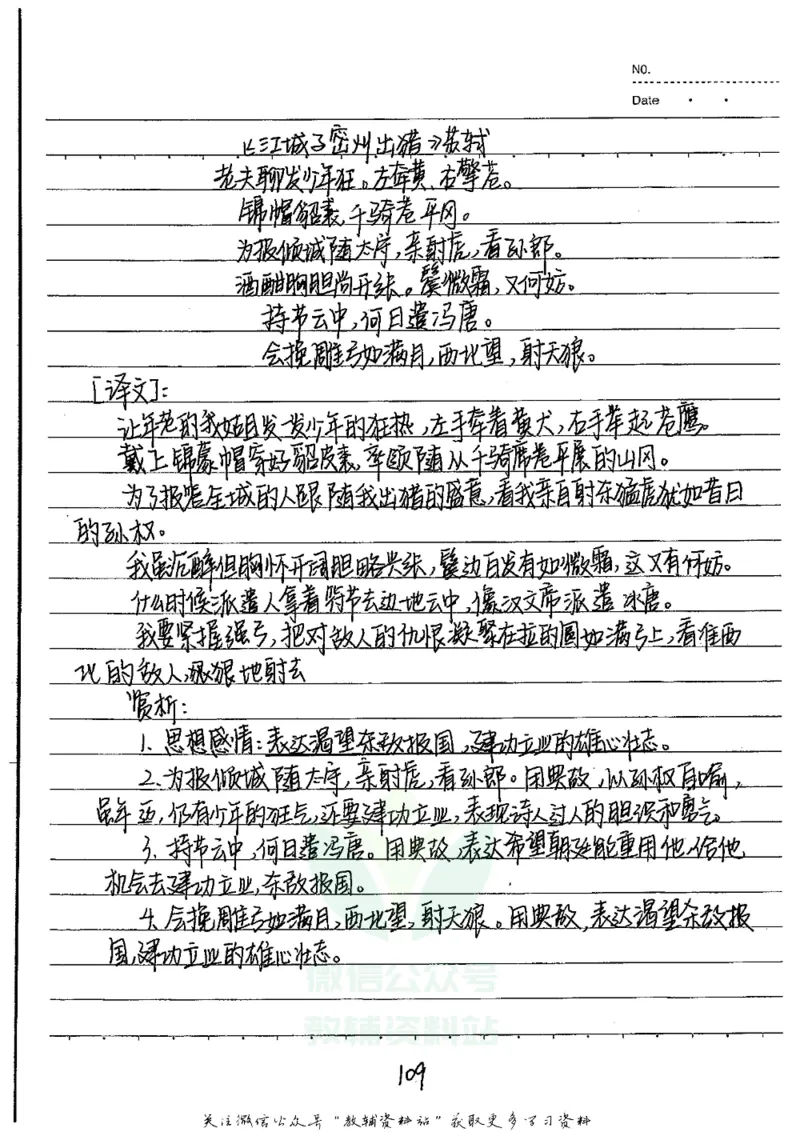 NO.
Date
《江城子密州出猎》苏轼
老夫聊发少年狂。左牵黄、右擎苍。
锦帽貂裘,千骑卷平冈。
为报倾城随太守,亲射虎,看孙郎。
酒酣胸胆尚开张。鬓微霜,又何妨。
持节云中,何日遣冯唐。
会挽雕弓如满月,西北望,射天狼。
[译文]:
让年老的我姑且发一发少年的狂热,左手牵着黄犬,右手举起苍鹰。
戴上锦蒙帽穿好貂皮裘,率领随从千骑席卷平展的山冈。
为了报答全城的人跟随我出猎的盛意,看我亲自射杀猛虎犹如昔日
的孙权。
我虽沉醉但胸怀开阔胆略兴张,鬓边白发有如微霜,这又有何妨。
什么时候派遣人拿着符节去边地云中,像汉文帝派遣冯唐。
我要紧握强弓,把对敌人的仇恨凝聚在拉的圆如满弓上,看准西
北的敌人,狠狠地射去
赏析:
1. 思想感情:表达渴望杀敌报国,建功立业的雄心壮志。
2. 为报倾城随太守,亲射虎,看孙郎。用典故,以孙权自喻,
虽年 ,仍有少年的狂气,还要建功立业,表现诗人过人的胆识和勇气。
3. 持节云中,何日遣冯唐。用典故,表达希望朝廷能重用他,给他
机会去建功立业,杀敌报国。
4. 会挽雕弓如满月,西北望,射天狼。用典故,表达渴望杀敌报
国,建功立业的雄心壮志。
微信公众号
教辅资料站
109
关注微信公众号"教辅资料站"获取更多学习资料